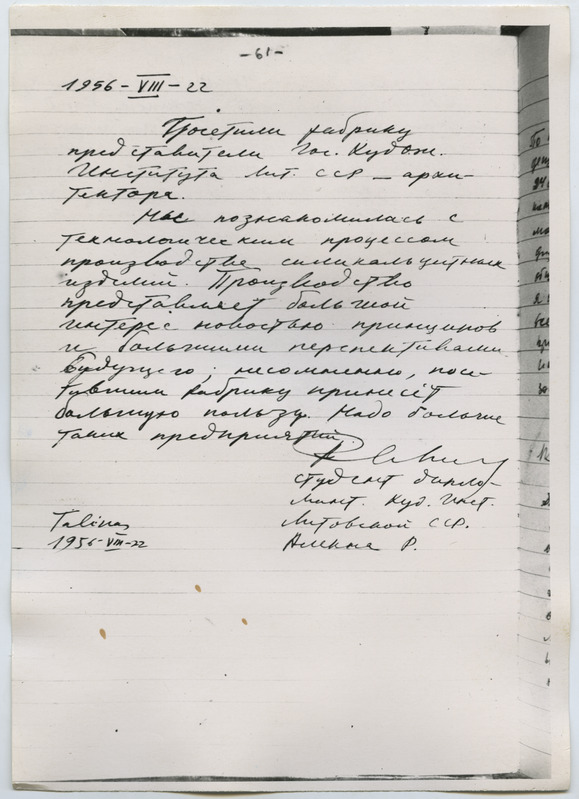 -61-
1956-VIII-22
Посетили фабрику
представители Гос. Худож.
Института Лит. ССР – архи-
тектора.
Мы познакомилась с
технологическим процессом
производстве силикальцитных
изделий. Производство
представляет большой
интерес новостью принципов
и большими перспективами
будущего; несомненно, посе-
тившим фабрику принесёт
большую пользу. Надо больше
таких предприятий.
студент дипло-
мант. Худ. Инст.
Литовской ССР.
Р.
Talinas
1956-VIII-22